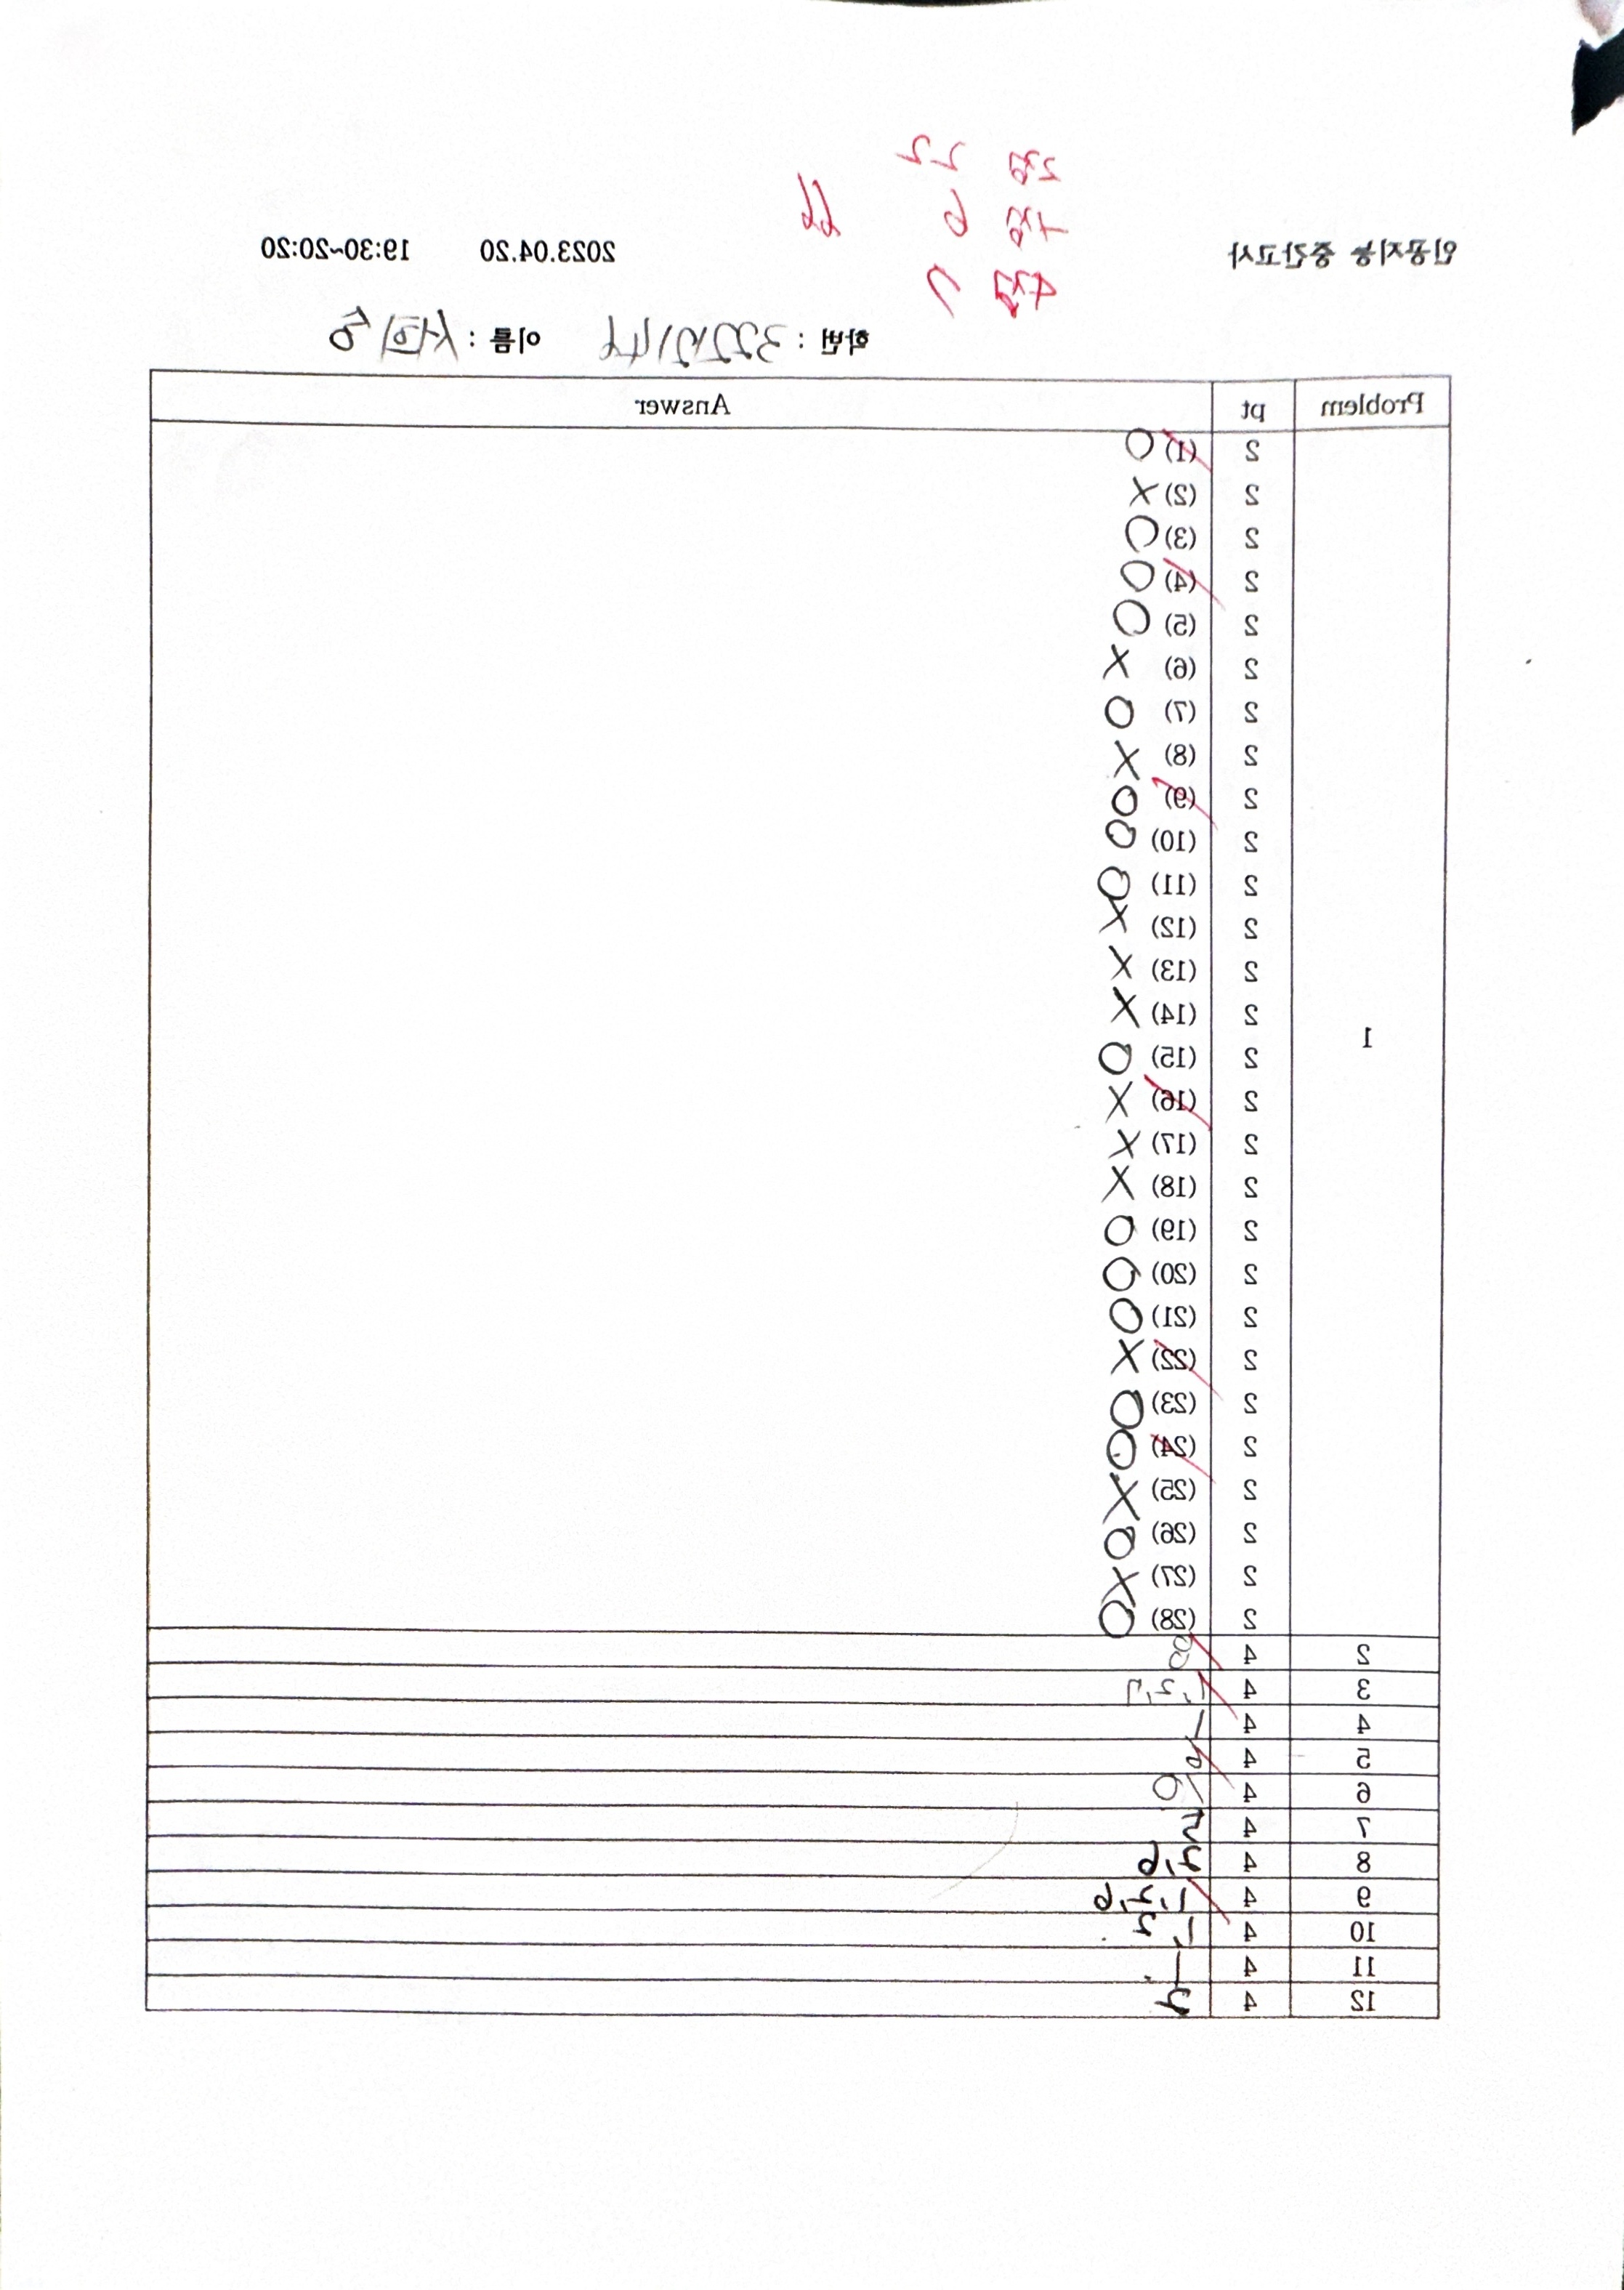 인공지능 중간고사 2023.04.20 19:30~20:20
2점 22
4점 7
학번 : 이름 :
Problem pt Answer
1
2 (1) O
2 (2) X
2 (3) O
2 (4) O
2 (5) O
2 (6) X
2 (7) O
2 (8) X
2 (9) O
2 (10) O
2 (11) O
2 (12) X
2 (13) X
2 (14) X
2 (15) O
2 (16) X
2 (17) X
2 (18) X
2 (19) O
2 (20) O
2 (21) O
2 (22) X
2 (23) O
2 (24) O
2 (25) X
2 (26) O
2 (27) X
2 (28) O
2 4
3 4
4 4
5 4
6 4
7 4
8 4
9 4
10 4
11 4
12 4